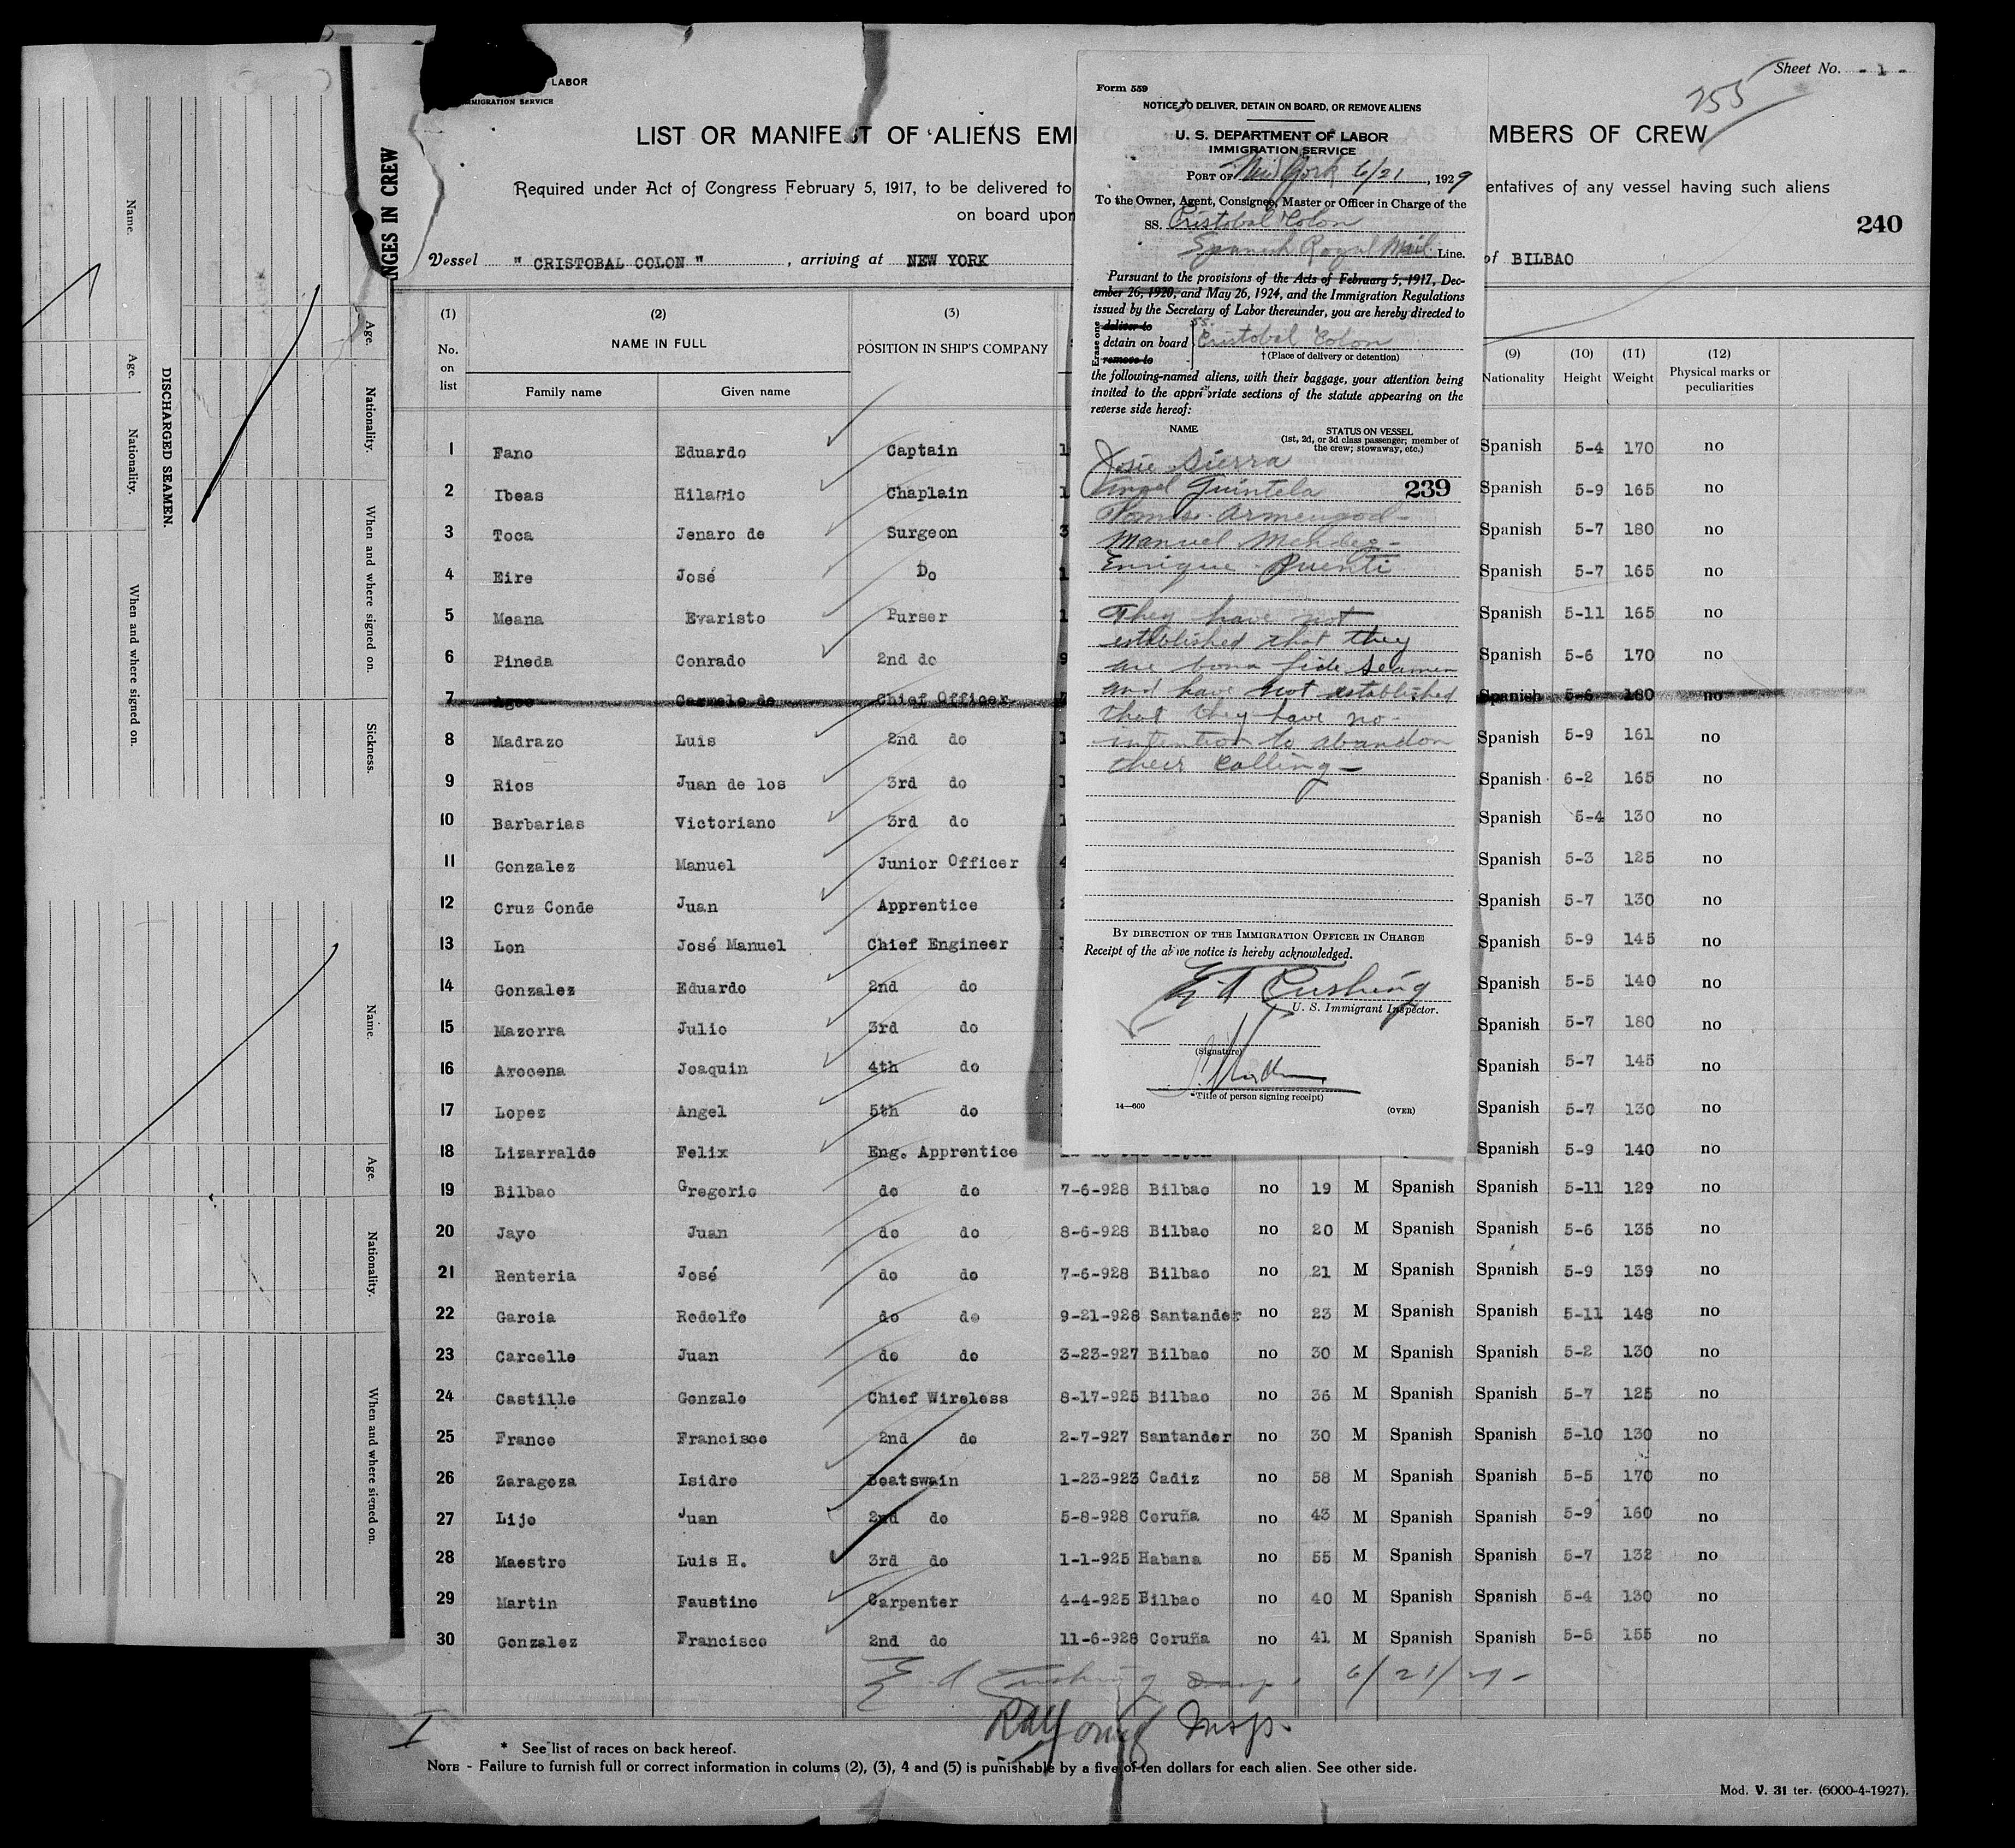 LABOR
IMMIGRATION SERVICE
Sheet No. - 1 -
255
LIST OR MANIFEST OF ALIENS EM
MBERS OF CREW
Required under Act of Congress February 5, 1917, to be delivered to
entatives of any vessel having such aliens
on board upon
240
Vessel " CRISTOBAL COLON " , arriving at NEW YORK
of BILBAO
NGES IN CREW
DISCHARGED SEAMEN.
Name.
Age.
Nationality.
When and where signed on.
Age.
Nationality.
When and where signed on.
Sickness.
Name.
Age.
Nationality.
When and where signed on.
Form 559
NOTICE TO DELIVER, DETAIN ON BOARD, OR REMOVE ALIENS
U. S. DEPARTMENT OF LABOR
IMMIGRATION SERVICE
PORT OF New York 6/21, 1929
To the Owner, Agent, Consignee, Master or Officer in Charge of the
SS. Cristobal Colon
Spanish Royal Mail Line.
Pursuant to the provisions of the Acts of February 5, 1917, Dec-
ember 26, 1920, and May 26, 1924, and the Immigration Regulations
issued by the Secretary of Labor thereunder, you are hereby directed to
Erase one
deliver to
detain on board
remove to
SS. Cristobal Colon
† (Place of delivery or detention)
the following-named aliens, with their baggage, your attention being
invited to the appropriate sections of the statute appearing on the
reverse side hereof:
NAME
STATUS ON VESSEL
(1st, 2d, or 3d class passenger; member of
the crew; stowaway, etc.)
Josie Sierra
Angel Quintela
239
Armengod -
Manuel Mendez -
Enrique Puenti
They have not
established that they
are bona fide seamen
and have not established
that they have no
intention to abandon
their calling -
BY DIRECTION OF THE IMMIGRATION OFFICER IN CHARGE
Receipt of the above notice is hereby acknowledged.
E. A. Cushing
U. S. Immigrant Inspector.
(Signature)
(Title of person signing receipt)
14—600
(OVER)
(1) (2) (3) (9) (10) (11) (12)
No. on list NAME IN FULL POSITION IN SHIP'S COMPANY Nationality Height Weight Physical marks or peculiarities
Family name Given name
1 Fano Eduardo Captain 1 Spanish 5-4 170 no
2 Ibeas Hilario Chaplain 1 Spanish 5-9 165 no
3 Toca Jenaro de Surgeon 3 Spanish 5-7 180 no
4 Eire José Do 1 Spanish 5-7 165 no
5 Meana Evaristo Purser 1 Spanish 5-11 165 no
6 Pineda Conrado 2nd do 9 Spanish 5-6 170 no
7 Carmelo de Chief Officer Spanish 5-6 180 no
8 Madrazo Luis 2nd do 1 Spanish 5-9 161 no
9 Rios Juan de los 3rd do 1 Spanish 6-2 165 no
10 Barbarias Victoriano 3rd do 1 Spanish 5-4 130 no
11 Gonzalez Manuel Junior Officer 4 Spanish 5-3 125 no
12 Cruz Conde Juan Apprentice Spanish 5-7 130 no
13 Lon José Manuel Chief Engineer Spanish 5-9 145 no
14 Gonzalez Eduardo 2nd do Spanish 5-5 140 no
15 Mazorra Julio 3rd do Spanish 5-7 180 no
16 Arocena Joaquin 4th do Spanish 5-7 145 no
17 Lopez Angel 5th do Spanish 5-7 130 no
18 Lizarralde Felix Eng. Apprentice Spanish 5-9 140 no
19 Bilbao Gregorio do do 7-6-928 Bilbao no 19 M Spanish Spanish 5-11 129 no
20 Jayo Juan do do 8-6-928 Bilbao no 20 M Spanish Spanish 5-6 135 no
21 Renteria José do do 7-6-928 Bilbao no 21 M Spanish Spanish 5-9 139 no
22 Garcia Rodolfo do do 9-21-928 Santander no 23 M Spanish Spanish 5-11 148 no
23 Carcelle Juan do do 3-23-927 Bilbao no 30 M Spanish Spanish 5-2 130 no
24 Castillo Gonzalo Chief Wireless 8-17-925 Bilbao no 36 M Spanish Spanish 5-7 125 no
25 Franco Francisco 2nd do 2-7-927 Santander no 30 M Spanish Spanish 5-10 130 no
26 Zaragoza Isidro Boatswain 1-23-923 Cadiz no 58 M Spanish Spanish 5-5 170 no
27 Lijo Juan 2nd do 5-8-928 Coruña no 43 M Spanish Spanish 5-9 160 no
28 Maestro Luis H. 3rd do 1-1-925 Habana no 55 M Spanish Spanish 5-7 132 no
29 Martin Faustino Carpenter 4-4-925 Bilbao no 40 M Spanish Spanish 5-4 130 no
30 Gonzalez Francisco 2nd do 11-6-928 Coruña no 41 M Spanish Spanish 5-5 155 no
E. A. Cushing Insp. 6/21/29 -
Insp.
I
* See list of races on back hereof.
NOTE - Failure to furnish full or correct information in colums (2), (3), 4 and (5) is punishable by a five of ten dollars for each alien. See other side.
Mod. V. 31 ter. (6000-4-1927).